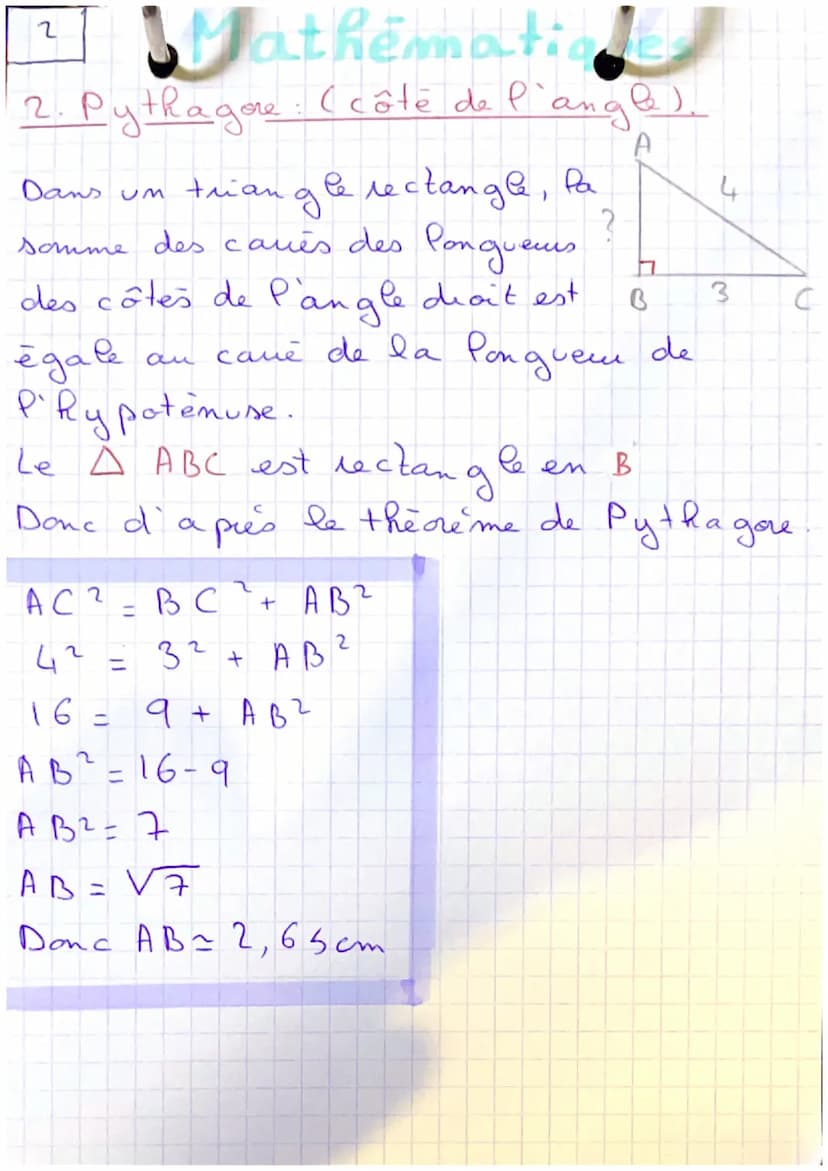 2
Mathématiques
2. Pythagore : (côté de l'angle).
Dans un triangle rectangle, la
somme des carrés des longueurs
des côtés de l'angle droit est
égale au carré de la longueur de
l'hypoténuse.
A
4
?
B
3
C
Le △ ABC est rectangle en B
Donc d'après le théorème de Pythagore.
AC² = BC² + AB²
4² = 3² + AB²
16 = 9 + AB²
AB² = 16-9
AB² = 7
AB = √7
Donc AB ≃ 2,65cm